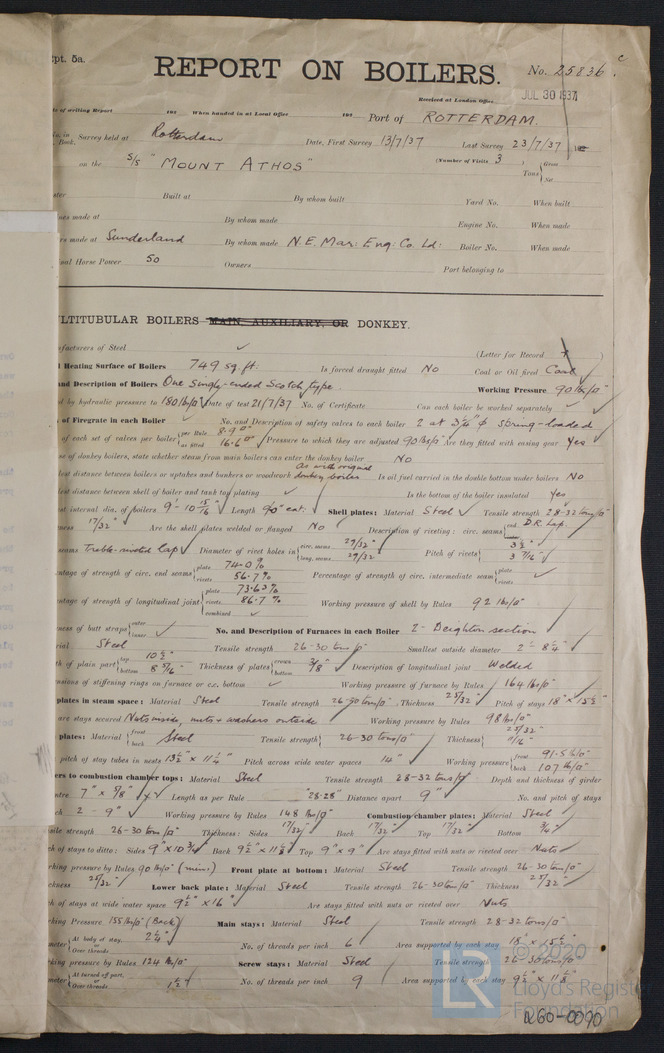 pt. 5a.
REPORT ON BOILERS.
No. 25836
JUL 30 1937
Received at London Office
of writing Report 193 When handed in at Local Office 193 Port of ROTTERDAM.
Survey held at Rotterdam Date, First Survey 13/7/37 Last Survey 23/7/37
Book.
on the S/S "MOUNT ATHOS" (Number of Visits 3 ) Tons Gross Net
Built at By whom built Yard No. When built
made at By whom made Engine No. When made
made at Sunderland By whom made N.E. Mar: Eng: Co. Ld: Boiler No. When made
Horse Power 50 Owners Port belonging to
LTITUBULAR BOILERS MAIN, AUXILIARY, OR DONKEY.
facturers of Steel ✓ (Letter for Record )
Heating Surface of Boilers 749 sq. ft. Is forced draught fitted No Coal or Oil fired Coal
and Description of Boilers One Single-ended Scotch type. Working Pressure 90 lbs/□"
d by hydraulic pressure to 180 lbs/□" Date of test 21/7/37 No. of Certificate Can each boiler be worked separately ✓
of Firegrate in each Boiler ✓ No. and Description of safety valves to each boiler 2 at 3¼" φ Spring-loaded
of each set of valves per boiler per Rule 8.90" as fitted 16.6□" Pressure to which they are adjusted 90 lbs/□" Are they fitted with easing gear Yes
se of donkey boilers, state whether steam from main boilers can enter the donkey boiler No
lest distance between boilers or uptakes and bunkers or woodwork As with original donkey boiler Is oil fuel carried in the double bottom under boilers No
lest distance between shell of boiler and tank top plating ✓ Is the bottom of the boiler insulated Yes
internal dia. of boilers 9'-10 15/16" Length 90" ext. Shell plates: Material Steel Tensile strength 28-32 tons/□"
ness 17/32" Are the shell plates welded or flanged No Description of riveting: circ. seams end D.R. Lap.
seams Treble-riveted Lap Diameter of rivet holes in circ. seams 29/32" long. seams 29/32" Pitch of rivets 3½" 3 7/16"
entage of strength of circ. end seams plate 74.0% rivets 56.7% Percentage of strength of circ. intermediate seam plate rivets ✓
entage of strength of longitudinal joint plate 73.63% rivets 86.7% combined ✓ Working pressure of shell by Rules 92 lbs/□"
ness of butt straps outer inner ✓ No. and Description of Furnaces in each Boiler 2- Deighton section
rial Steel Tensile strength 26-30 tons/□" Smallest outside diameter 2'-8¼"
th of plain part top 10½" bottom 8 5/16" Thickness of plates crown bottom 3/8" Description of longitudinal joint Welded
ensions of stiffening rings on furnace or c.c. bottom ✓ Working pressure of furnace by Rules 164 lbs/□"
plates in steam space: Material Steel Tensile strength 26-30 tons/□" Thickness 25/32" Pitch of stays 18" x 15½"
are stays secured Nuts inside, nuts & washers outside Working pressure by Rules 98 lbs/□"
plates: Material front back Steel Tensile strength 26-30 tons/□" Thickness 25/32" 11/16"
pitch of stay tubes in nests 13½" x 11¼" Pitch across wide water spaces 14" Working pressure front 91.5 lbs/□" back 107 lbs/□"
ers to combustion chamber tops: Material Steel Tensile strength 28-32 tons/□" Depth and thickness of girder
entre 7" x 5/8" Length as per Rule 28.28" Distance apart 9" No. and pitch of stays
ch 2 - 9" Working pressure by Rules 148 lbs/□" Combustion chamber plates: Material Steel
sile strength 26-30 tons/□" Thickness: Sides 17/32" Back 17/32" Top 17/32" Bottom ¾"
h of stays to ditto: Sides 9" x 10¾" Back 9½" x 11⅛" Top 9" x 9" Are stays fitted with nuts or riveted over Nuts
king pressure by Rules 90 lbs/□" (min.) Front plate at bottom: Material Steel Tensile strength 26-30 tons/□"
kness 25/32" Lower back plate: Material Steel Tensile strength 26-30 tons/□" Thickness 25/32"
h of stays at wide water space 9½" x 16" Are stays fitted with nuts or riveted over Nuts
king Pressure 155 lbs/□" (Back) Main stays: Material Steel Tensile strength 28-32 tons/□"
meter At body of stay, Over threads 2¼" No. of threads per inch 6 Area supported by each stay 18" x 15½"
king pressure by Rules 124 lbs/□" Screw stays: Material Steel Tensile strength 26-30 tons/□"
meter At turned off part, or Over threads 1½" No. of threads per inch 9 Area supported by each stay 9½" x 11⅛"
© 2020
Lloyd's Register
Foundation
W60-0090